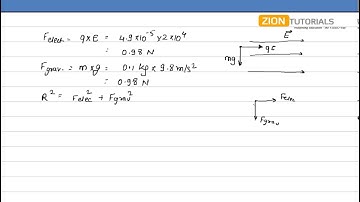 ZION
TUTORIALS
F_elect = q×E = 4.9×10^-5 × 2×10^4
= 0.98 N
F_grav. = m×g = 0.1 kg × 9.8 m/s^2
= 0.98 N
R^2 = F_elec^2 + F_grav^2
E
qE
mg
F_elec
F_grav